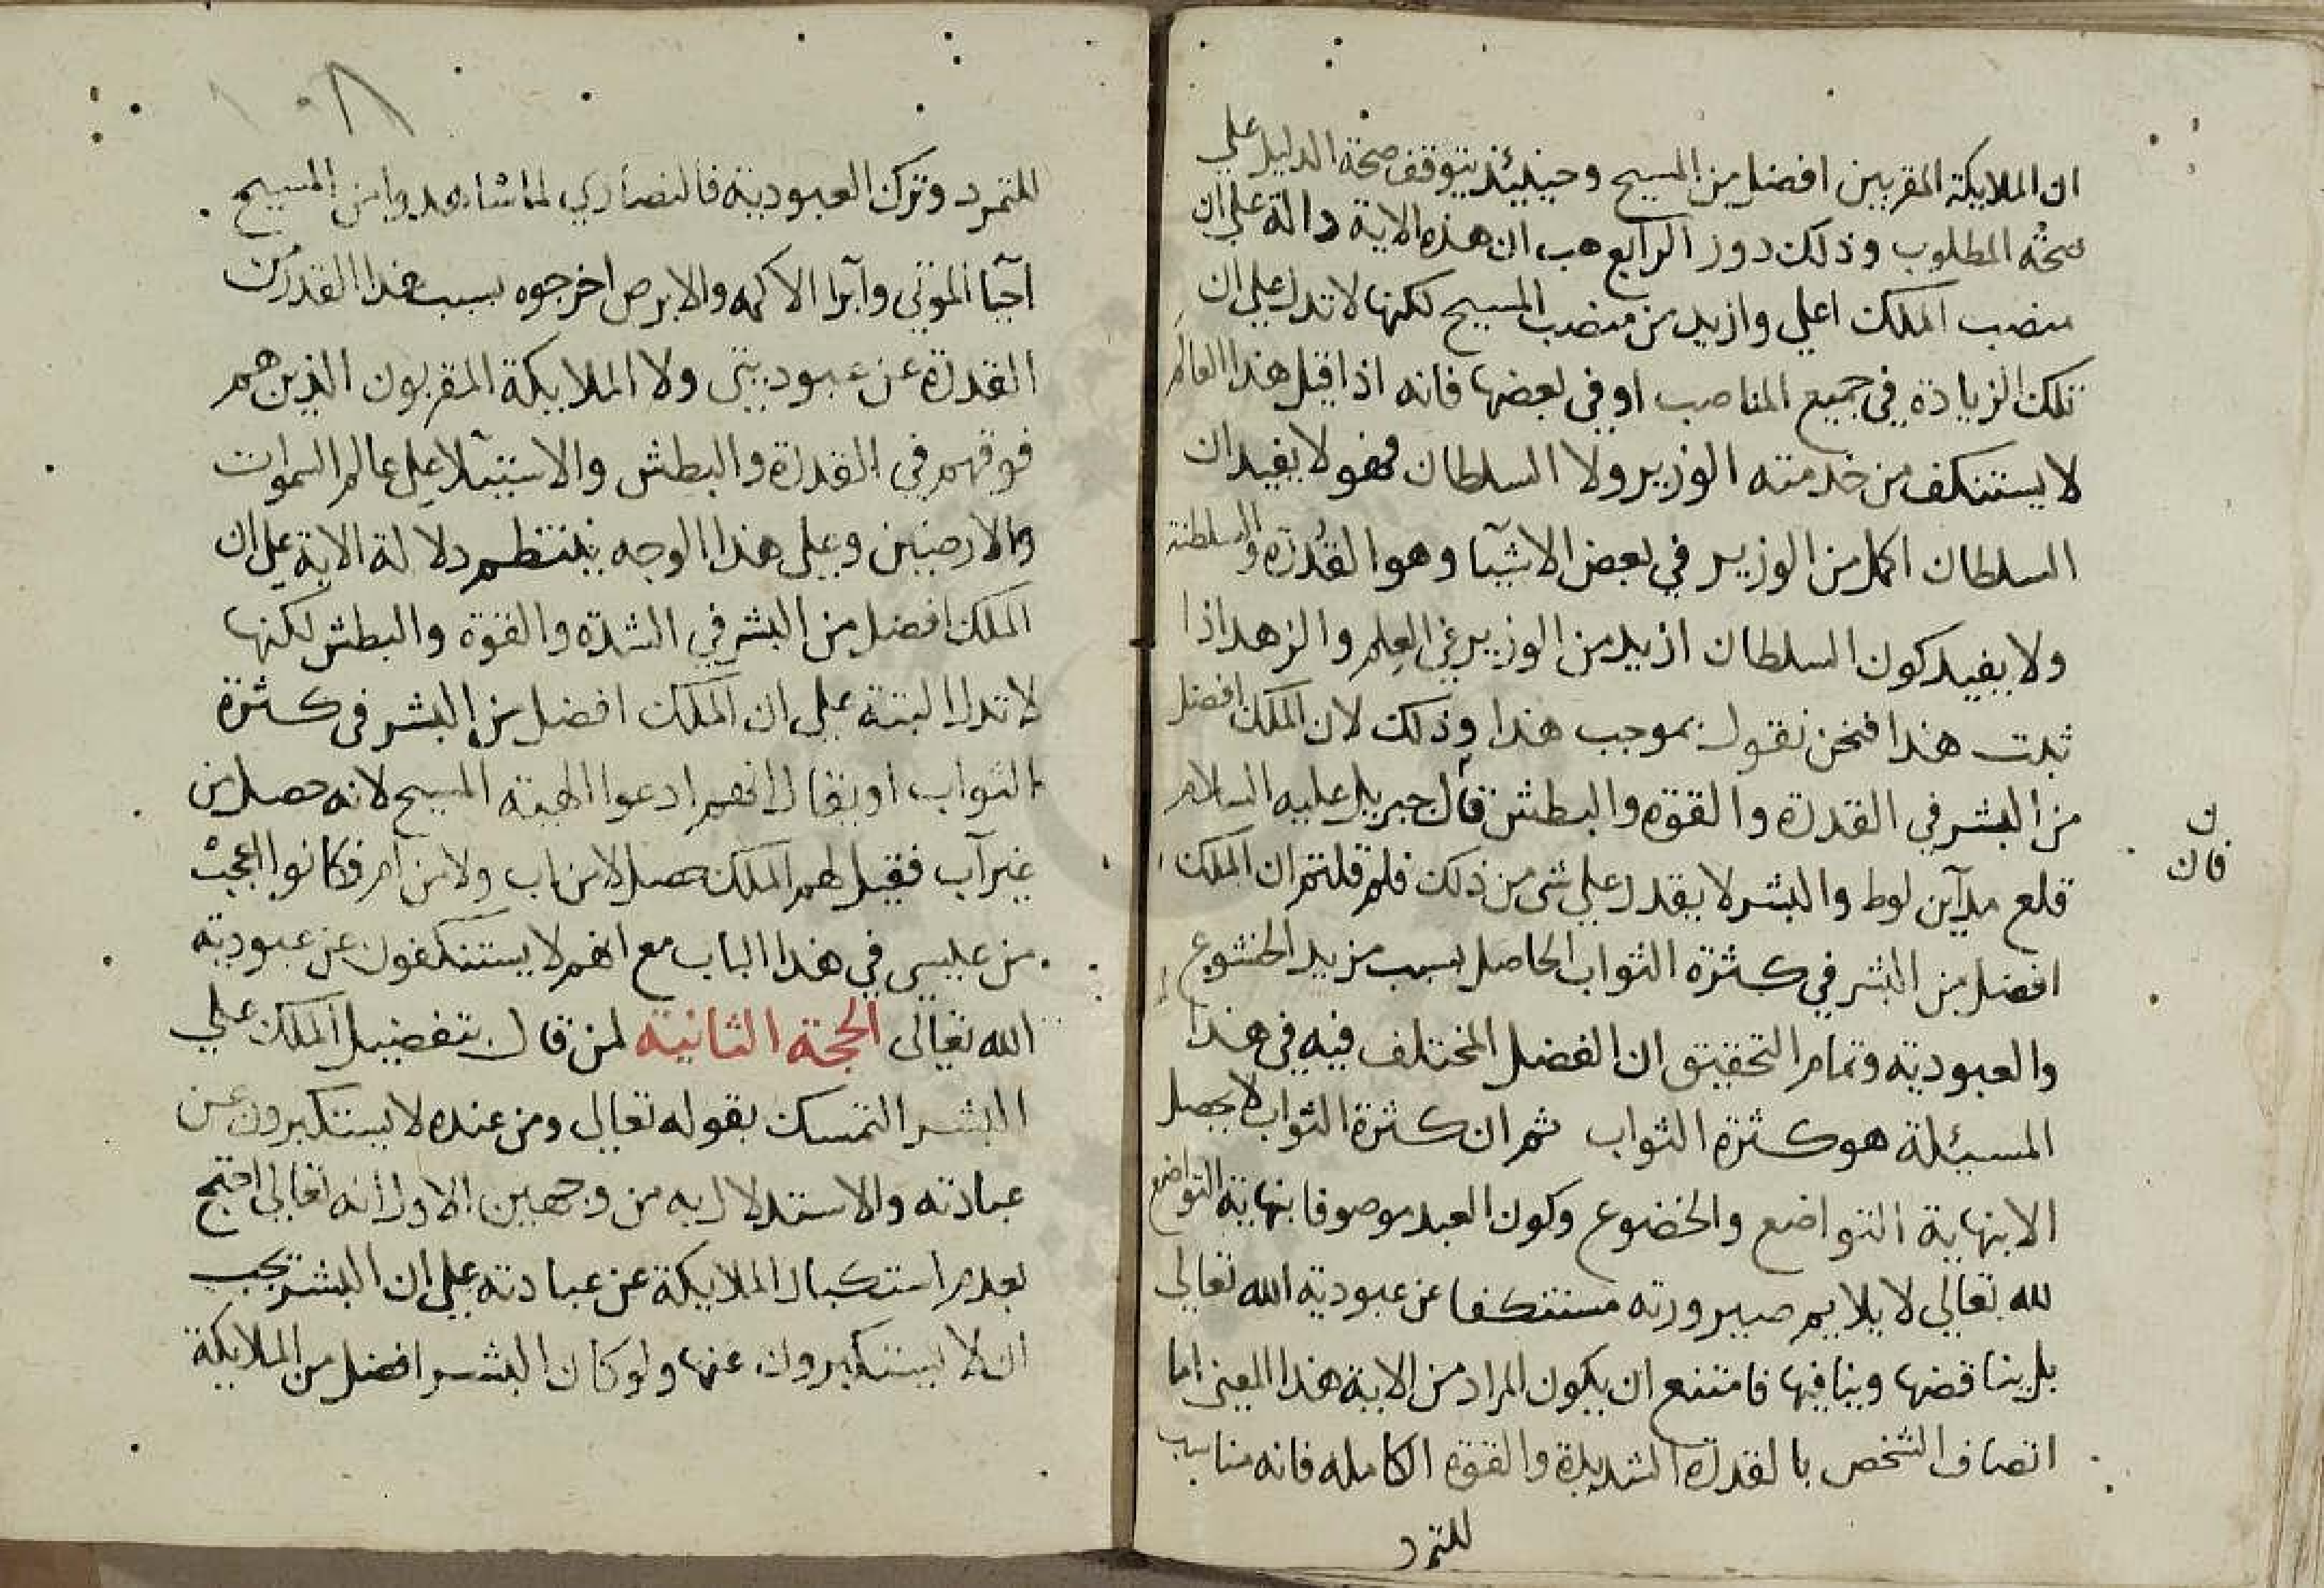 ان الملايكة المقربين افضل من المسيح وحينيئذ يتوقف صحة الدليل علي
صحة المطلوب وذلك دور الرابع هب ان هذه الاية دالة علي ان
منصب الملك اعلي وازيد من منصب المسيح لكنها لا تدل علي ان
تلك الزيادة في جميع المناصب او في بعضها فانه اذا قيل هذا العالم
لا يستنكف من خدمته الوزير ولا السلطان فهو لا يفيد ان
السلطان اكمل من الوزير في بعض الاشيآ وهو القدرة والسلطنة
ولا يفيد كون السلطان ازيد من الوزير في العلم والزهد اذا
ثبت هذا فنحن نقول بموجب هذا وذلك لان الملك افضل
من البشر في القدرة والقوة والبطش قآل جبريل عليه السلام
ن
فان
قلع مدآين لوط والبشر لا يقدر علي شي من ذلك فلم قلتم ان الملك
افضل من البشر في كثرة الثواب الحاصل بسبب مزيد الخشوع
والعبودية وتمام التحقيق ان الفضل المختلف فيه في هذا
المسيئلة هو كثرة الثواب ثم ان كثرة الثواب لا يحصل
الا بنهاية التواضع والخضوع وكون العبد موصوفا بنهاية التواضع
لله تعالي لا يلايم صيرورته مستنكفا عن عبودية الله تعالي
بل يناقضها وينافيها فامتنع ان يكون المراد من الاية هذا المعني اما
اتصاف الشخص بالقدرة الشديدة والقوة الكامله فانه مناسب
للتمرد
١٠٨
للتمرد وترك العبودية فالنصاري لما شاهدوا من المسيح
احيآ الموتي وآبرا الاكمه والابرص اخرجوه بسبب هذا القدر من
القدرة عن عبوديتي ولا الملايكة المقربون الذين هم
فوقهم في القدرة والبطش والاستيلا علي عالم السموات
والارضين وعلي هذا الوجه ينتظم دلالة الاية علي ان
الملك افضل من البشر في الشدة والقوة والبطش لكنها
لا تدل البتة علي ان الملك افضل من البشر في كثرة
الثواب او يقال انهم ادعوا الهية المسيح لانه حصل من
غير آب فقيل لهم الملك حصل لا من اب ولا من ام فكانوا اعجب
من عليسي في هذا الباب مع انهم لا يستنكفون عن عبودية
الله تعالي الحجة الثانية لمن قال بتفضيل الملك علي
البشر التمسك بقوله تعالي ومن عنده لا يستكبرون عن
عبادته والاستدلال به من وجهين الاول انه تعالي احتج
بعدم استكبار الملايكة عن عبادته علي ان البشر يجب
ان لا يستكبرون عنها ولو كان البشر افضل من الملايكة